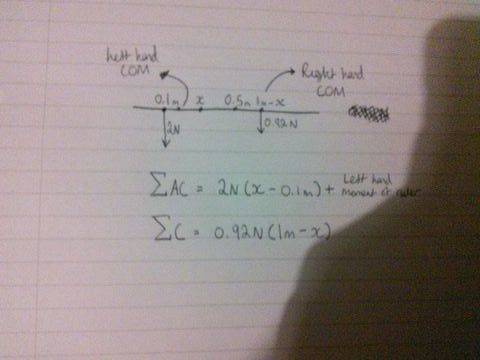 Left hand
COM
Right hand
COM
0.1m x 0.5m 1m-x
2N
0.92N
ΣAC = 2N(x-0.1m)+ Left hand
Moment of ruler
ΣC = 0.92N(1m-x)